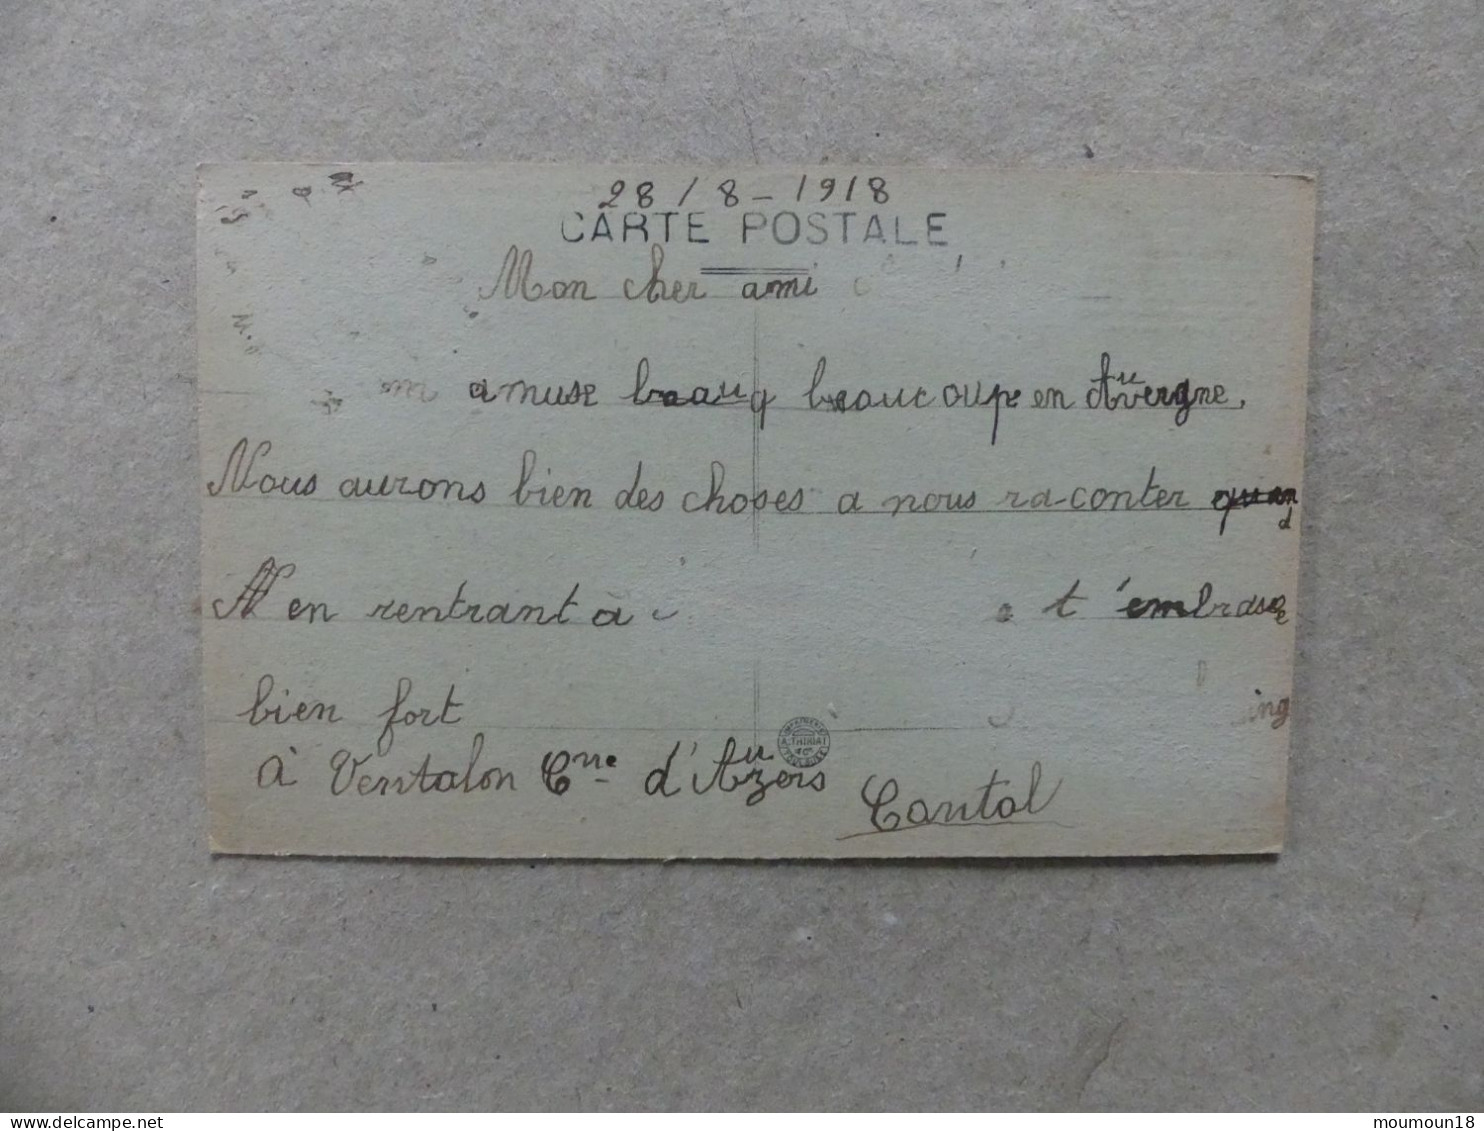 28/8-1918
CARTE POSTALE
Mon cher ami
amuse beaucoup en Auvergne,
Nous aurons bien des choses a nous ra-conter quand
en rentrant à t'embrasse
bien fort
à Ventalon Cne d'Auzers
Cantal
A. THIRIAT
TOULOUSE
moumoun18